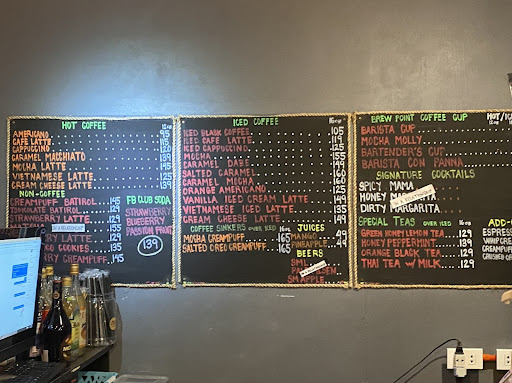 HOT COFFEE
AMERICANO 95
CAFE LATTE 115
CAPPUCCINO 120
CARAMEL MACCHIATO 139
MOCHA LATTE 145
VIETNAMESE LATTE 125
CREAM CHEESE LATTE 139
NON-COFFEE
CREAMPUFF BATIROL 145
TSOKOLATE BATIROL
STRAWBERRY LATTE 129
RY LATTE 129
RY COOKIES 135
RRY CREAMPUFF 145
FB CLUB SODA
STRAWBERRY
BLUEBERRY
PASSION FRUIT
139
ICED COFFEE
ICED BLACK COFFEE 105
ICED CAFE LATTE 119
ICED CAPPUCCINO 125
MOCHA 155
CARAMEL DABE 149
SALTED CARAMEL 160
CARAMEL MOCHA 160
ORANGE AMERICANO 125
VANILLA ICED CREAM LATTE 149
VIETNAMESE ICED LATTE 135
CREAM CHEESE LATTE 149
COFFEE SINKERS OVER ICED 16oz
MOCHA CREAMPUFF 165
SALTED OREO CREAMPUFF 165
JUICES
MANGO 49
PINEAPPLE 49
BEERS
SML
SM APPLE
BREW POINT COFFEE CUP
HOT/IC
BARISTA CUP
MOCHA MOLLY
BARTENDER'S CUP
BARISTA CON PANNA
SIGNATURE COCKTAILS
SPICY MAMA
HONEY
DIRTY MARGARITA
SPECIAL TEAS OVER ICED 16oz
GREEN HONEY LEMON TEA 129
HONEY PEPPERMINT 139
ORANGE BLACK TEA 129
THAI TEA W/ MILK 129
ADD-
ESPRESS
WHIP CRE
CREAMPUFF
CRUSHED O